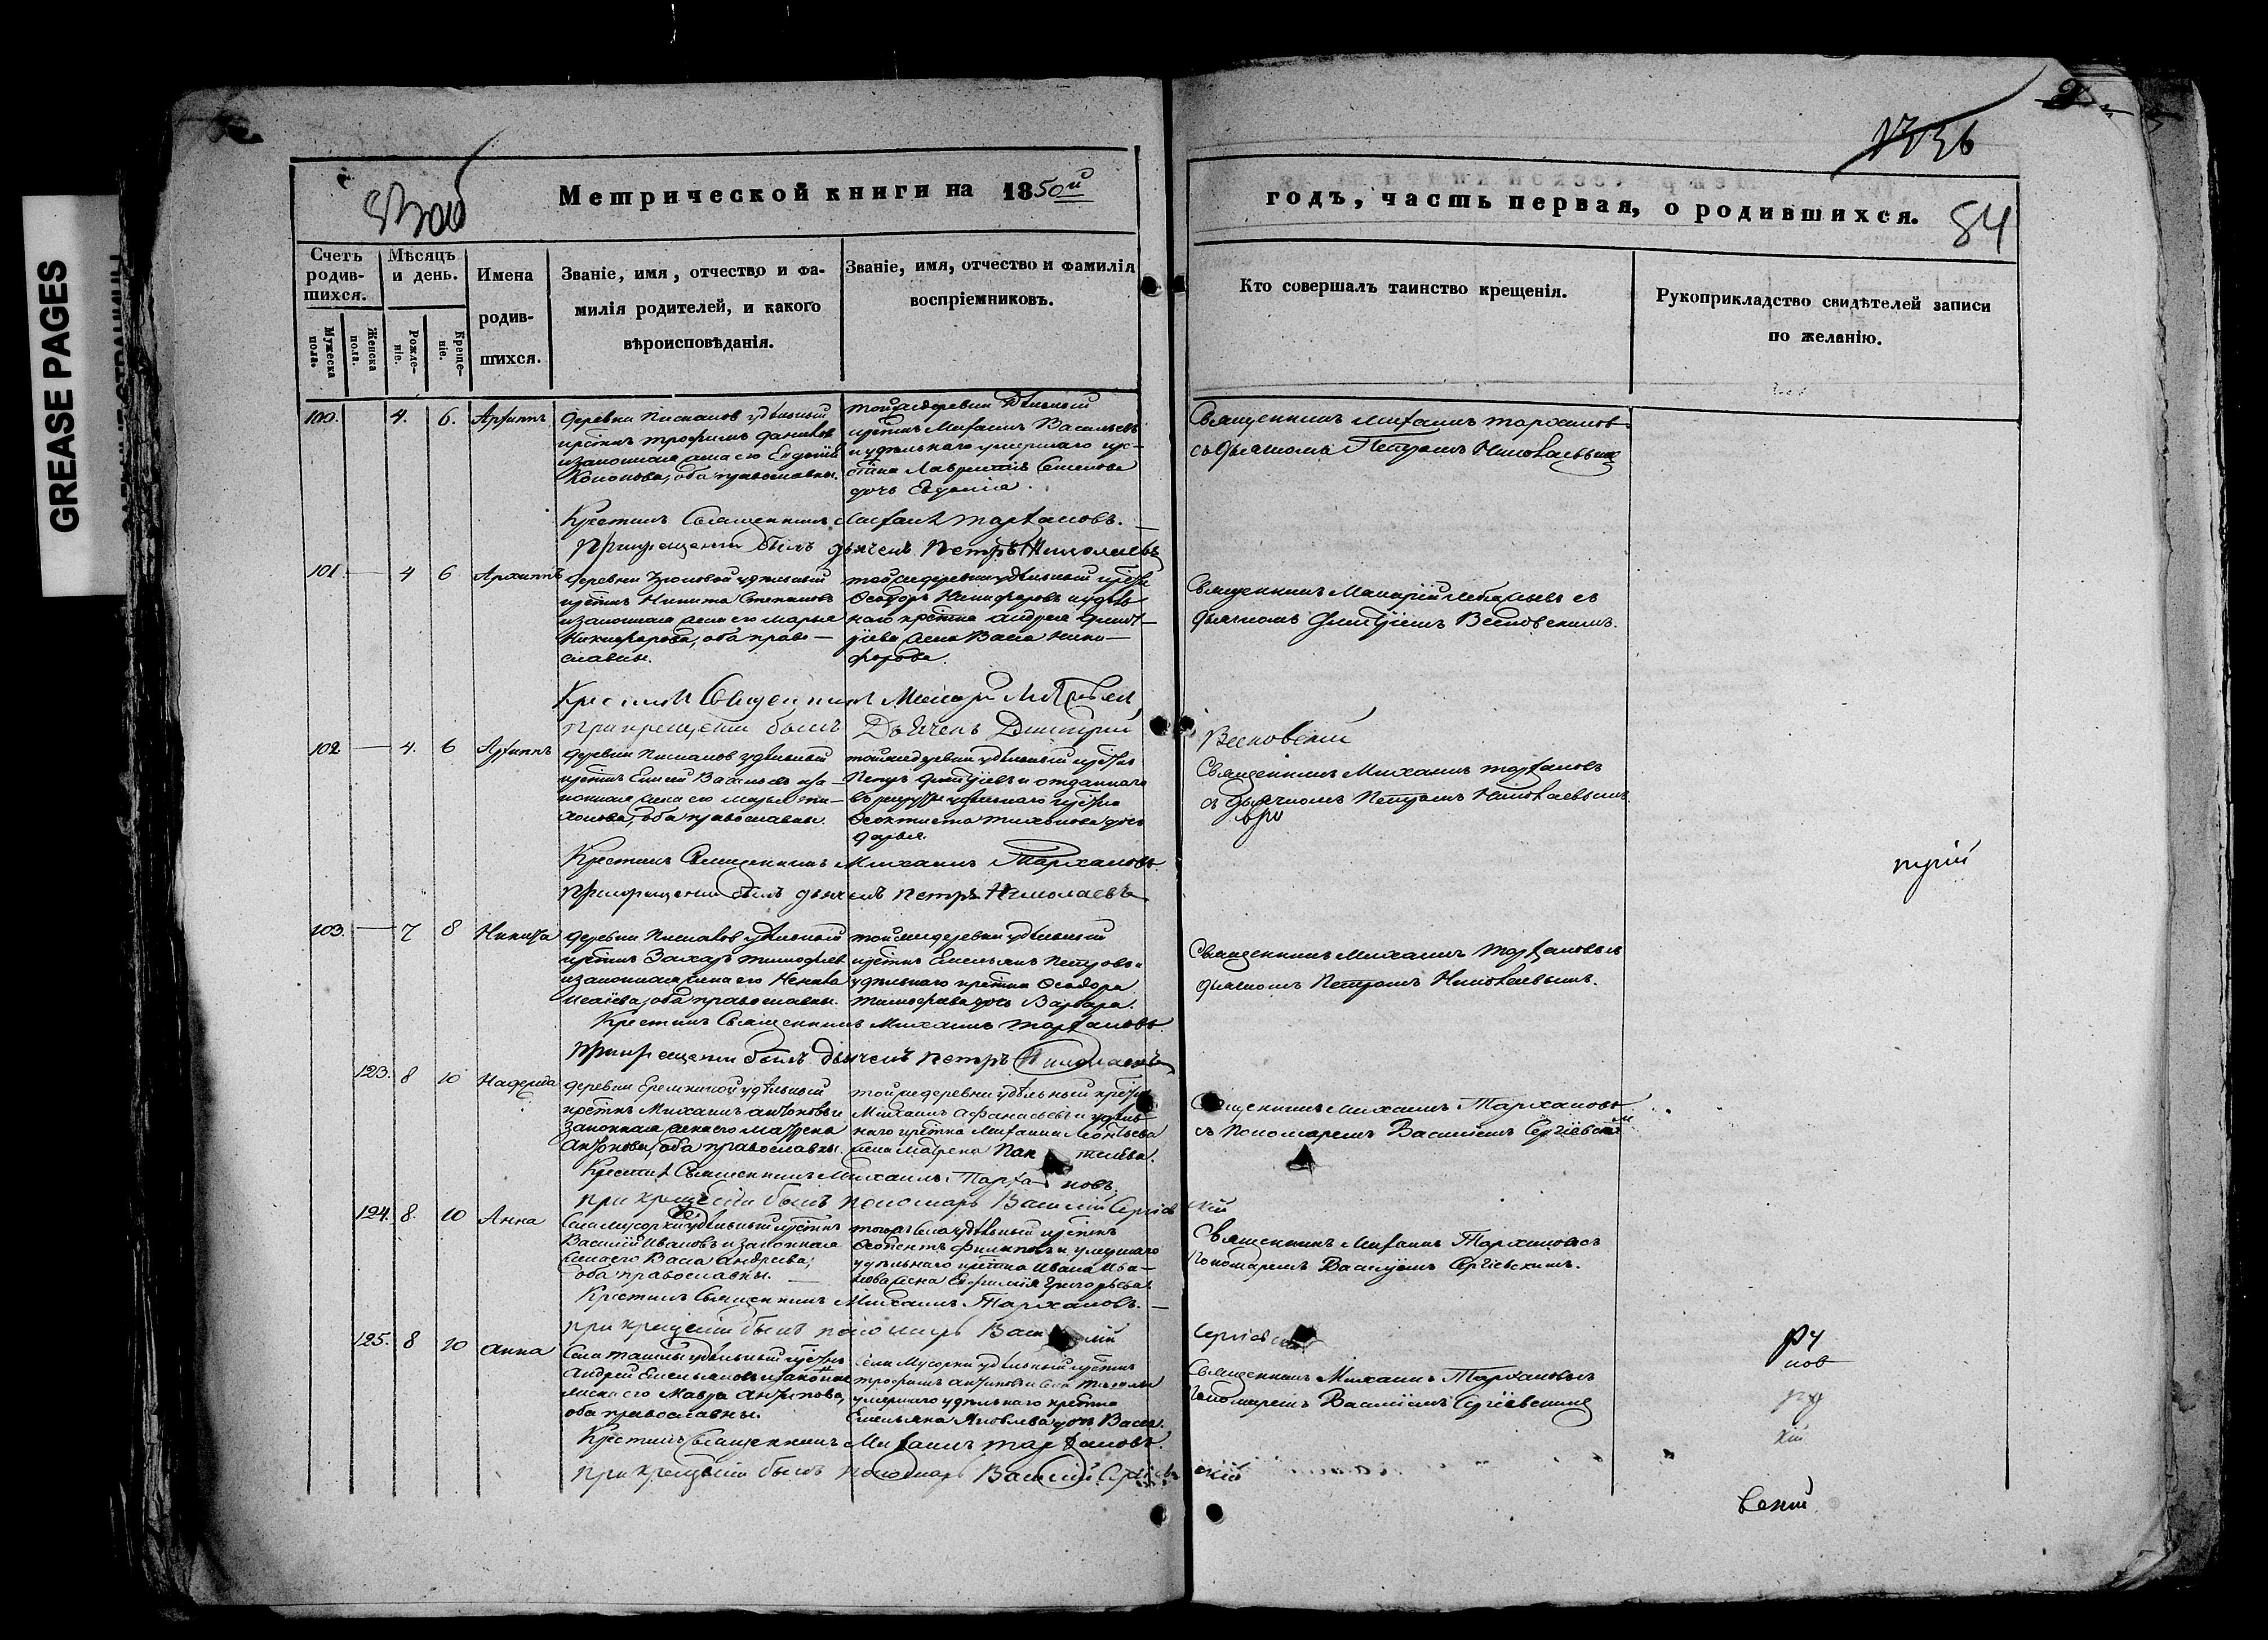 GREASE PAGES
336
84
Метрической книги на 1850й
годъ, часть первая, о родившихся.
Счетъ родив-
шихся.
Мѣсяцъ
и день.
Имена
родив-
шихся.
Званіе, имя, отчество и фа-
милія родителей, и какого
вѣроисповѣданія.
Званіе, имя, отчество и фамилія
воспріемниковъ.
Кто совершалъ таинство крещенія.
Рукоприкладство свидѣтелей записи
по желанію.
Мужеска
пола.
Женска
пола.
Рожде-
ніе.
Креще-
ніе.
100. 4. 6. Архиппъ
удѣльный
крстнъ Трофимъ
и законная жена его
Кононова, оба православны.
тойже деревни удѣльный
крстнъ Михаилъ Васильевъ
и удѣльнаго умершаго кре-
Семенова
дочь Евдокія.
Священникъ Михаилъ Тархановъ
съ дьячкомъ Петромъ Николаевымъ
Крестилъ Священникъ Михаилъ Тархановъ.
При крещеніи былъ дьячекъ Петръ Николаевъ
101. 4 6 Архиппъ
удѣльный
крстнъ Никита Степановъ
и законная жена его Марья
Никифорова, оба право-
славны.
тойже деревни удѣльный крстнъ
Ѳеодоръ Никифоровъ и удѣль
наго крстна Андрея Дмит-
ріева жена Васса Ники-
форова.
Священникъ Макарій Лебедевъ съ
дьячкомъ Дмитріемъ
Крестилъ Священникъ Макарій
При крещеніи былъ Дьячекъ Дмитрій
102 4. 6 Архиппъ
удѣльный
крстнъ Елисей Васильевъ и за-
конная жена его Марья Ти-
хонова, оба православны.
тойже деревни удѣльный крстнъ
Петръ Дмитріевъ и отданнаго
въ рекруты удѣльнаго крстна
Ѳеоктиста Тихонова дочь
Дарья.
Священникъ Михаилъ Тархановъ
съ дьячкомъ Петромъ Николаевымъ.
Крестилъ Священникъ Михаилъ Тархановъ.
При крещеніи былъ дьячекъ Петръ Николаевъ
103. 7 8 Никита
удѣльный
крстнъ Захаръ Тимофеев
и законная жена его
Исаіева, оба православны.
тойже деревни удѣльный
крстнъ Емельянъ Петровъ и
удѣльнаго крстна Ѳеодора
Тимофеева дочь Варвара.
Священникъ Михаилъ Тархановъ съ
дьячкомъ Петромъ Николаевымъ.
Крестилъ Священникъ Михаилъ Тархановъ.
При крещеніи былъ дьячекъ Петръ Николаевъ
123. 8 10 Надежда
деревни Еремкиной удѣльный
крстнъ Михаилъ Антоновъ и
законная жена его Матрена
Антонова, оба православны.
тойже деревни удѣльный крстнъ
Михаилъ Афанасьевъ и удѣль
наго крстна Михаила Леонтьева
жена Матрена Пан телѣева.
Священникъ Михаилъ Тархановъ
съ Пономаремъ Василіемъ Сергіевскимъ
Крестилъ Священникъ Михаилъ Тархановъ.
При крещеніи былъ пономарь Василій Сергіевскій
124. 8. 10 Анна
Села Мусорки удѣльный крстнъ
Василій Ивановъ и законная
жена его Васса Андреева,
оба православны.
тогожъ села удѣльный крстнъ
Филиповъ и умершаго
удѣльнаго крстна Ивана Ива-
нова жена Евфимія Григорьева.
Священникъ Михаилъ Тархановъ съ
Пономаремъ Василіемъ Сергіевскимъ.
Крестилъ Священникъ Михаилъ Тархановъ.
При крещеніи былъ пономарь Василій Сергіевскій
125. 8 10 Анна
Села Ташлы удѣльный крстнъ
Андрей Емельяновъ и законная
жена его Мавра Антипова,
оба православны.
Села Мусорки удѣльный крстнъ
Трофимъ Антиповъ и села Ташлы
умершаго удѣльнаго крстна
Емельяна Яковлева дочь Васса.
Священникъ Михаилъ Тархановъ съ
Пономаремъ Василіемъ Сергіевскимъ
Крестилъ Священникъ Михаилъ Тархановъ.
При крещеніи былъ пономарь Василій Сергіевскій